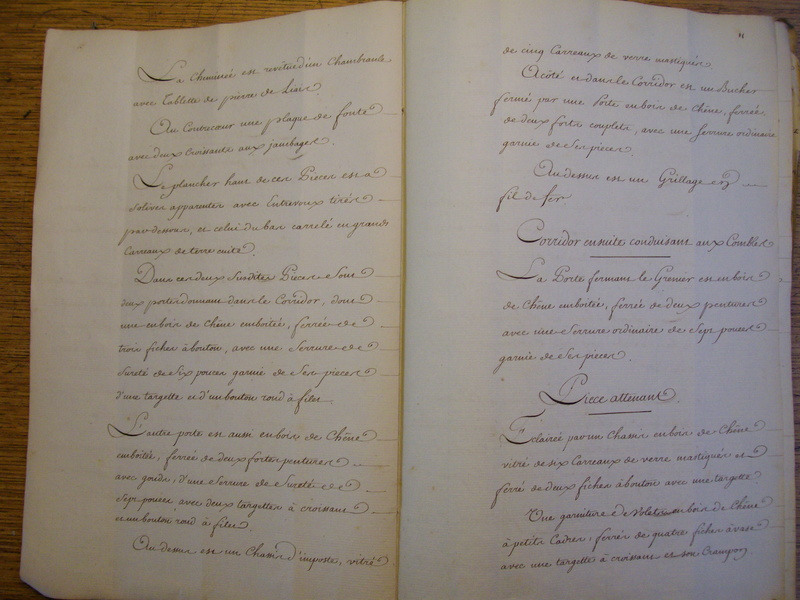 La Cheminée est revétue d'un Chambranle
avec Tablette de pierre de Liais.
Au Contrecœur une plaque de fonte
avec deux Croissants aux jambages.
Le plancher haut de ces Pieces est a
solives apparentes avec Entrevoux tirés
par dessous, et celui du bas carrelé en grands
Carreaux de terre cuite.
Dans ces deux susdites Pieces sont
deux portes donnant dans le Corridor, dont
une en bois de chêne emboitée, ferrée de
trois fiches à bouton, avec une serrure de
sureté de six pouces garnie de ses pieces
d'une targette et d'un bouton rond à filets
L'autre porte est aussi en bois de Chêne
emboitée, ferrée de deux fortes pentures
avec gonds, d'une serrure de sureté de
sept pouces avec deux targettes à croissants
et un bouton rond à filets
Au dessus est un Chassis d'imposte, vitré
11
de cinq Carreaux de verre mastiqués.
A côté et dans le Corridor est un Bucher
fermé par une Porte en bois de Chêne, ferrée
de deux forts couplets, avec une serrure ordinaire
garnie de ses pieces.
Au dessus est un Grillage en
fil de fer
Corridor ensuite conduisant aux Combles
La Porte fermant le Grenier est en bois
de Chêne emboitée, ferrée de deux pentures
avec une serrure ordinaire de sept pouces
garnie de ses pieces.
Piece attenant.
Eclairée par un Chassis en bois de Chêne
vitré de six Carreaux de verre mastiqués et
ferré de deux fiches à bouton avec une targette.
Une garniture de Volets en bois de Chêne
à petits Cadres, ferrés de quatre fiches à vase
avec une targette à croissant et son Crampon